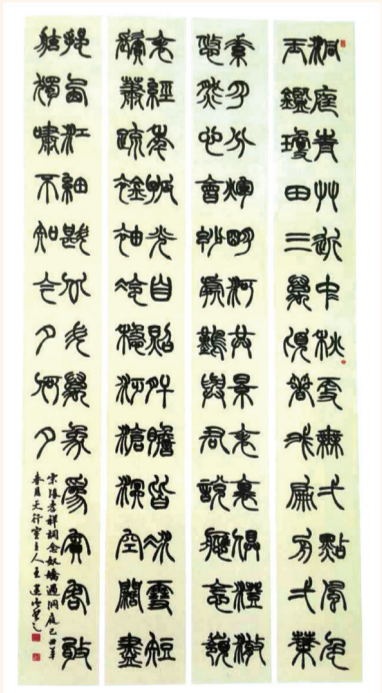 洞庭青艸近中秋更無一點風色
玉鑑瓊田三萬頃著我扁舟一葉
素月分輝明河共景表裏俱澄澈
悠然心會妙處難與君說應念嶺
表經年孤光自照肝膽皆冰雪短
髮蕭疏襟袖冷穩泛滄溟空闊盡
挹西江細斟北斗萬象為賓客敂
舷獨嘯不知今夕何夕
宋張孝祥詞念奴嬌過洞庭己丑年
春月天行室主人王